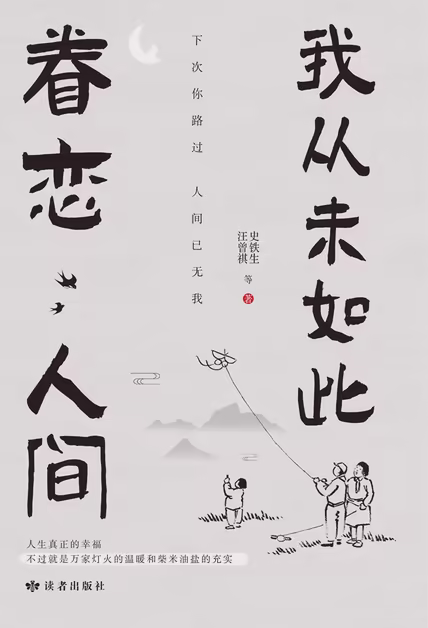 我从未如此
眷恋人间
下次你路过 人间已无我
史铁生
汪曾祺
等
著
人生真正的幸福
不过就是万家灯火的温暖和柴米油盐的充实
读者出版社